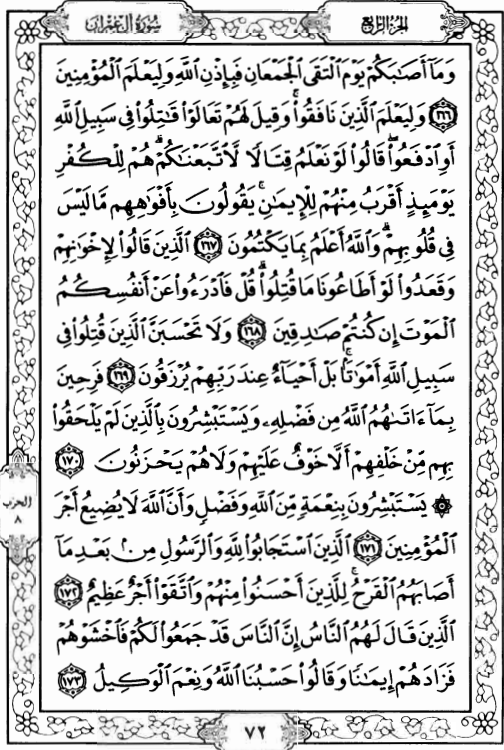 الجزء الرابع
سورة آل عمران
وَمَآ أَصَٰبَكُمْ يَوْمَ ٱلْتَقَى ٱلْجَمْعَانِ فَبِإِذْنِ ٱللَّهِ وَلِيَعْلَمَ ٱلْمُؤْمِنِينَ
۝١٦٦ وَلِيَعْلَمَ ٱلَّذِينَ نَافَقُوا۟ۚ وَقِيلَ لَهُمْ تَعَالَوْا۟ قَٰتِلُوا۟ فِى سَبِيلِ ٱللَّهِ
أَوِ ٱدْفَعُوا۟ۖ قَالُوا۟ لَوْ نَعْلَمُ قِتَالًا لَّٱتَّبَعْنَٰكُمْۗ هُمْ لِلْكُفْرِ
يَوْمَئِذٍ أَقْرَبُ مِنْهُمْ لِلْإِيمَٰنِۚ يَقُولُونَ بِأَفْوَٰهِهِم مَّا لَيْسَ
فِى قُلُوبِهِمْۗ وَٱللَّهُ أَعْلَمُ بِمَا يَكْتُمُونَ ۝١٦٧ ٱلَّذِينَ قَالُوا۟ لِإِخْوَٰنِهِمْ
وَقَعَدُوا۟ لَوْ أَطَاعُونَا مَا قُتِلُوا۟ۗ قُلْ فَٱدْرَءُوا۟ عَنْ أَنفُسِكُمُ
ٱلْمَوْتَ إِن كُنتُمْ صَٰدِقِينَ ۝١٦٨ وَلَا تَحْسَبَنَّ ٱلَّذِينَ قُتِلُوا۟ فِى
سَبِيلِ ٱللَّهِ أَمْوَٰتًۢاۚ بَلْ أَحْيَآءٌ عِندَ رَبِّهِمْ يُرْزَقُونَ ۝١٦٩ فَرِحِينَ
بِمَآ ءَاتَىٰهُمُ ٱللَّهُ مِن فَضْلِهِۦ وَيَسْتَبْشِرُونَ بِٱلَّذِينَ لَمْ يَلْحَقُوا۟
بِهِم مِّنْ خَلْفِهِمْ أَلَّا خَوْفٌ عَلَيْهِمْ وَلَا هُمْ يَحْزَنُونَ ۝١٧٠
۞ يَسْتَبْشِرُونَ بِنِعْمَةٍ مِّنَ ٱللَّهِ وَفَضْلٍ وَأَنَّ ٱللَّهَ لَا يُضِيعُ أَجْرَ
ٱلْمُؤْمِنِينَ ۝١٧١ ٱلَّذِينَ ٱسْتَجَابُوا۟ لِلَّهِ وَٱلرَّسُولِ مِنۢ بَعْدِ مَآ
أَصَابَهُمُ ٱلْقَرْحُۚ لِلَّذِينَ أَحْسَنُوا۟ مِنْهُمْ وَٱتَّقَوْا۟ أَجْرٌ عَظِيمٌ ۝١٧٢
ٱلَّذِينَ قَالَ لَهُمُ ٱلنَّاسُ إِنَّ ٱلنَّاسَ قَدْ جَمَعُوا۟ لَكُمْ فَٱخْشَوْهُمْ
فَزَادَهُمْ إِيمَٰنًا وَقَالُوا۟ حَسْبُنَا ٱللَّهُ وَنِعْمَ ٱلْوَكِيلُ ۝١٧٣
الحزب
٨
٧٢